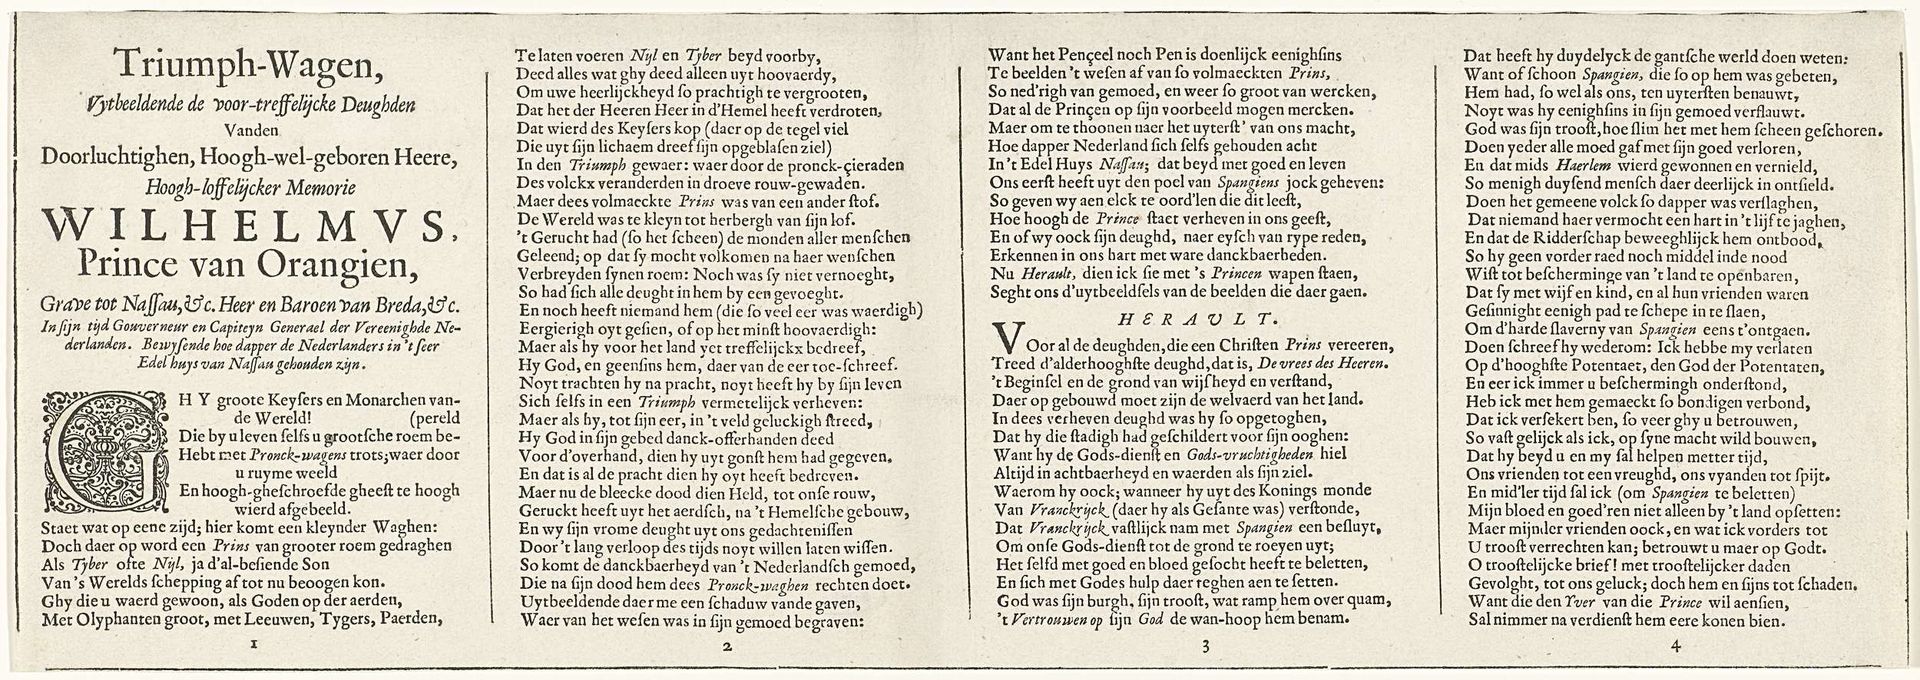 Triumph-Wagen,
Uytbeeldende de voor-treffelijcke Deughden
Vanden
Doorluchtighen, Hoogh-wel-geboren Heere,
Hoogh-loffelijcker Memorie
WILHELMVS,
Prince van Orangien,
Grave tot Naſſau, &c. Heer en Baroen van Breda, &c.
In ſijn tijd Gouverneur en Capiteyn Generael der Vereenighde Ne-
derlanden. Bewyſende hoe dapper de Nederlanders in 't ſeer
Edel huys van Naſſau gehouden zijn.
GHY groote Keyſers en Monarchen van-
de Wereld! (pereld
Die by u leven ſelfs u grootſche roem be-
Hebt met Pronck-wagens trots; waer door
u ruyme weeld
En hoogh-gheſchroefde gheeſt te hoogh
wierd afgebeeld.
Staet wat op eene zijd; hier komt een kleynder Waghen:
Doch daer op word een Prins van grooter roem gedraghen
Als Tyber ofte Nijl, ja d'al-beſiende Son
Van 's Werelds ſchepping af tot nu beoogen kon.
Ghy die u waerd gewoon, als Goden op der aerden,
Met Olyphanten groot, met Leeuwen, Tygers, Paerden,
1
Te laten voeren Nijl en Tyber beyd voorby,
Deed alles wat ghy deed alleen uyt hoovaerdy,
Om uwe heerlijckheyd ſo prachtigh te vergrooten,
Dat het der Heeren Heer in d'Hemel heeft verdroten,
Dat wierd des Keyſers kop (daer op de tegel viel
Die uyt ſijn lichaem dreef ſijn opgeblaſen ziel)
In den Triumph gewaer: waer door de pronck-çieraden
Des volckx veranderden in droeve rouw-gewaden.
Maer dees volmaeckte Prins was van een ander ſtof.
De Wereld was te kleyn tot herbergh van ſijn lof.
't Gerucht had (ſo het ſcheen) de monden aller menſchen
Geleend; op dat ſy mocht volkomen na haer wenſchen
Verbreyden ſynen roem: Noch was ſy niet vernoeght,
So had ſich alle deught in hem by een gevoeght.
En noch heeft niemand hem (die ſo veel eer was waerdigh)
Eergierigh oyt geſien, of op het minſt hoovaerdigh:
Maer als hy voor het land yet treffelijckx bedreef,
Hy God, en geenſins hem, daer van de eer toe-ſchreef.
Noyt trachten hy na pracht, noyt heeft hy by ſijn leven
Sich ſelfs in een Triumph vermetelijck verheven:
Maer als hy, tot ſijn eer, in 't veld geluckigh ſtreed,
Hy God in ſijn gebed danck-offerhanden deed
Voor d'overhand, dien hy uyt gonſt hem had gegeven,
En dat is al de pracht dien hy oyt heeft bedreven.
Maer nu de bleecke dood dien Held, tot onſe rouw,
Geruckt heeft uyt het aerdſch, na 't Hemelſche gebouw,
En wy ſijn vrome deught uyt ons gedachteniſſen
Door 't lang verloop des tijds noyt willen laten wiſſen.
So komt de danckbaerheyd van 't Nederlandſch gemoed,
Die na ſijn dood hem dees Pronck-waghen rechten doet.
Uytbeeldende daer me een ſchaduw vande gaven,
Waer van het weſen was in ſijn gemoed begraven:
2
Want het Pençeel noch Pen is doenlijck eenighſins
Te beelden 't weſen af van ſo volmaeckten Prins,
So ned'righ van gemoed, en weer ſo groot van wercken,
Dat al de Prinçen op ſijn voorbeeld mogen mercken.
Maer om te thoonen naer het uyterſt' van ons macht,
Hoe dapper Nederland ſich ſelfs gehouden acht
In 't Edel Huys Naſſau; dat beyd met goed en leven
Ons eerſt heeft uyt den poel van Spangiens jock geheven:
So geven wy aen elck te oord'len die dit leeſt,
Hoe hoogh de Prince ſtaet verheven in ons geeſt,
En of wy oock ſijn deughd, naer eyſch van rype reden,
Erkennen in ons hart met ware danckbaerheden.
Nu Herault, dien ick ſie met 's Princen wapen ſtaen,
Seght ons d'uytbeeldſels van de beelden die daer gaen.
HERAULT.
Voor al de deughden, die een Chriſten Prins vereeren,
Treed d'alderhooghſte deughd, dat is, De vrees des Heeren.
't Beginſel en de grond van wijſheyd en verſtand,
Daer op gebouwd moet zijn de welvaerd van het land.
In dees verheven deughd was hy ſo opgetoghen,
Dat hy die ſtadigh had geſchildert voor ſijn ooghen:
Want hy de Gods-dienſt en Gods-vruchtigheden hiel
Altijd in achtbaerheyd en waerden als ſijn ziel.
Waerom hy oock; wanneer hy uyt des Konings monde
Van Vranckrijck (daer hy als Geſante was) verſtonde,
Dat Vranckrijck vaſtlijck nam met Spangien een beſluyt,
Om onſe Gods-dienſt tot de grond te roeyen uyt;
Het ſelfd met goed en bloed geſocht heeft te beletten,
En ſich met Godes hulp daer reghen aen te ſetten.
God was ſijn burgh, ſijn trooſt, wat ramp hem over quam,
't Vertrouwen op ſijn God de wan-hoop hem benam.
3
Dat heeft hy duydelyck de gantſche werld doen weten:
Want of ſchoon Spangien, die ſo op hem was gebeten,
Hem had, ſo wel als ons, ten uyterſten benauwt,
Noyt was hy eenighſins in ſijn gemoed verflauwt.
God was ſijn trooſt, hoe ſlim het met hem ſcheen geſchoren.
Doen yeder alle moed gaf met ſijn goed verloren,
En dat mids Haerlem wierd gewonnen en vernield,
So menigh duyſend menſch daer deerlijck in ontſield.
Doen het gemeene volck ſo dapper was verſlaghen,
Dat niemand haer vermocht een hart in 't lijf te jaghen,
En dat de Ridderſchap beweeghlijck hem ontbood,
So hy geen vorder raed noch middel inde nood
Wiſt tot beſcherminge van 't land te openbaren,
Dat ſy met wijf en kind, en al hun vrienden waren
Geſinnight eenigh pad te ſchepe in te ſlaen,
Om d'harde ſlaverny van Spangien eens t'ontgaen.
Doen ſchreef hy wederom: Ick hebbe my verlaten
Op d'hooghſte Potentaet, den God der Potentaten,
En eer ick immer u beſchermingh onderſtond,
Heb ick met hem gemaeckt ſo bondigen verbond,
Dat ick verſekert ben, ſo veer ghy u betrouwen,
So vaſt gelijck als ick, op ſyne macht wild bouwen,
Dat hy beyd u en my ſal helpen metter tijd,
Ons vrienden tot een vreughd, ons vyanden tot ſpijt.
En mid'ler tijd ſal ick (om Spangien te beletten)
Mijn bloed en goed'ren niet alleen by 't land opſetten:
Maer mijnder vrienden oock, en wat ick vorders tot
U trooſt verrechten kan; betrouwt u maer op Godt.
O trooſtelijcke brief! met trooſtelijcker daden
Gevolght, tot ons geluck; doch hem en ſijns tot ſchaden.
Want die den Yver van die Prince wil aenſien,
Sal nimmer na verdienſt hem eere konen bien.
4